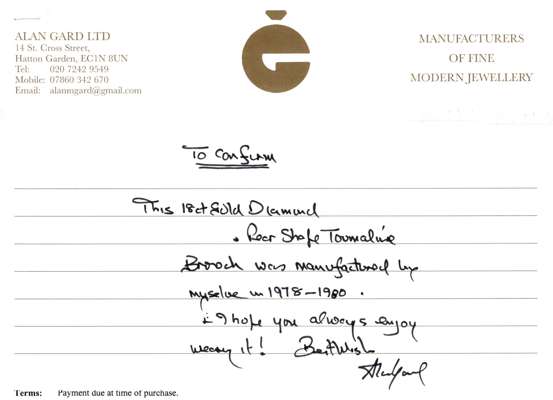 ALAN GARD LTD
14 St. Cross Street,
Hatton Garden, EC1N 8UN
Tel: 020 7242 9549
Mobile: 07860 342 670
Email: alanmgard@gmail.com
MANUFACTURERS
OF FINE
MODERN JEWELLERY
To Confirm
This 18ct Gold Diamond
. Pear Shape Tourmaline
Brooch was manufactured by
myselve in 1978-1980 .
I hope you always enjoy
wearing it! Best Wish
Alan Gard
Terms: Payment due at time of purchase.